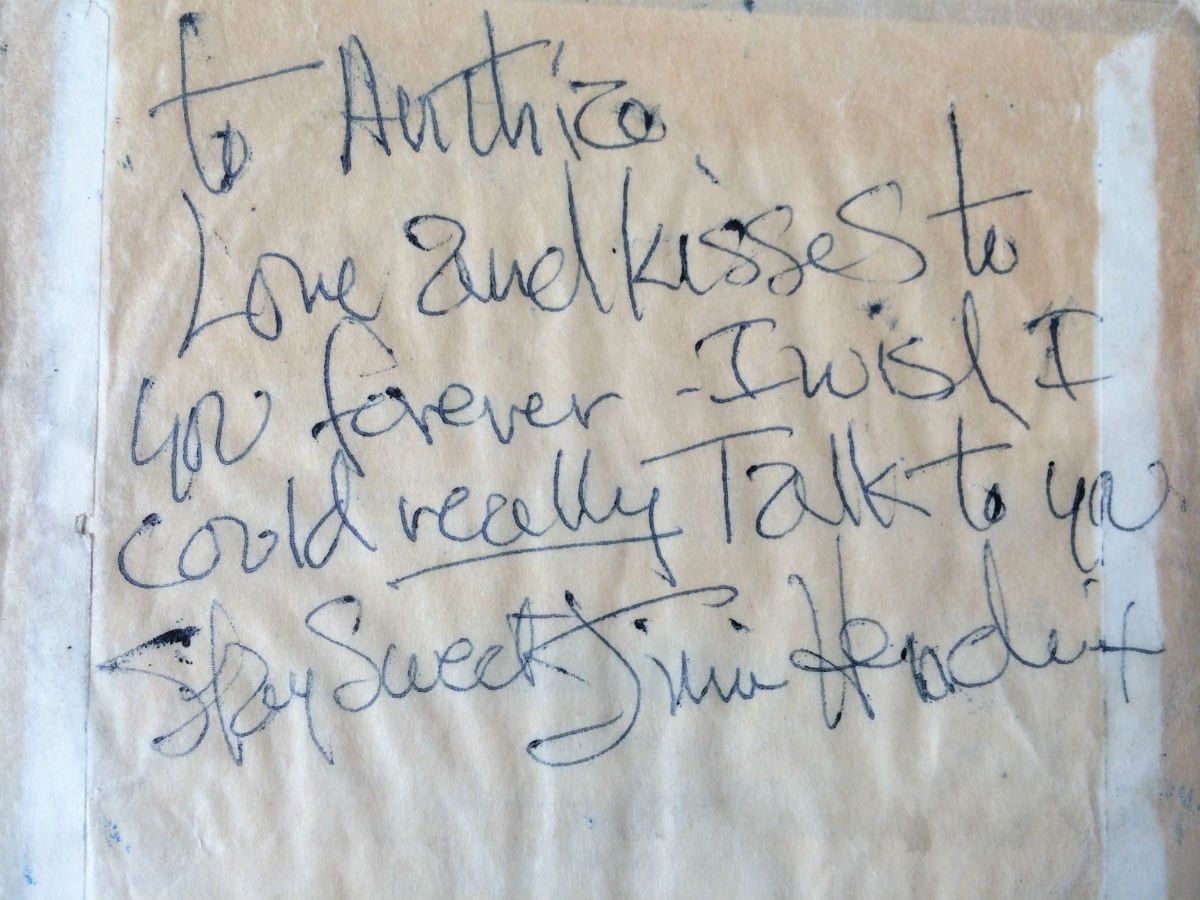 to Anthia
Love and kisses to
you forever - I wish I
could really Talk to you
Stay Sweet Jimi Hendrix